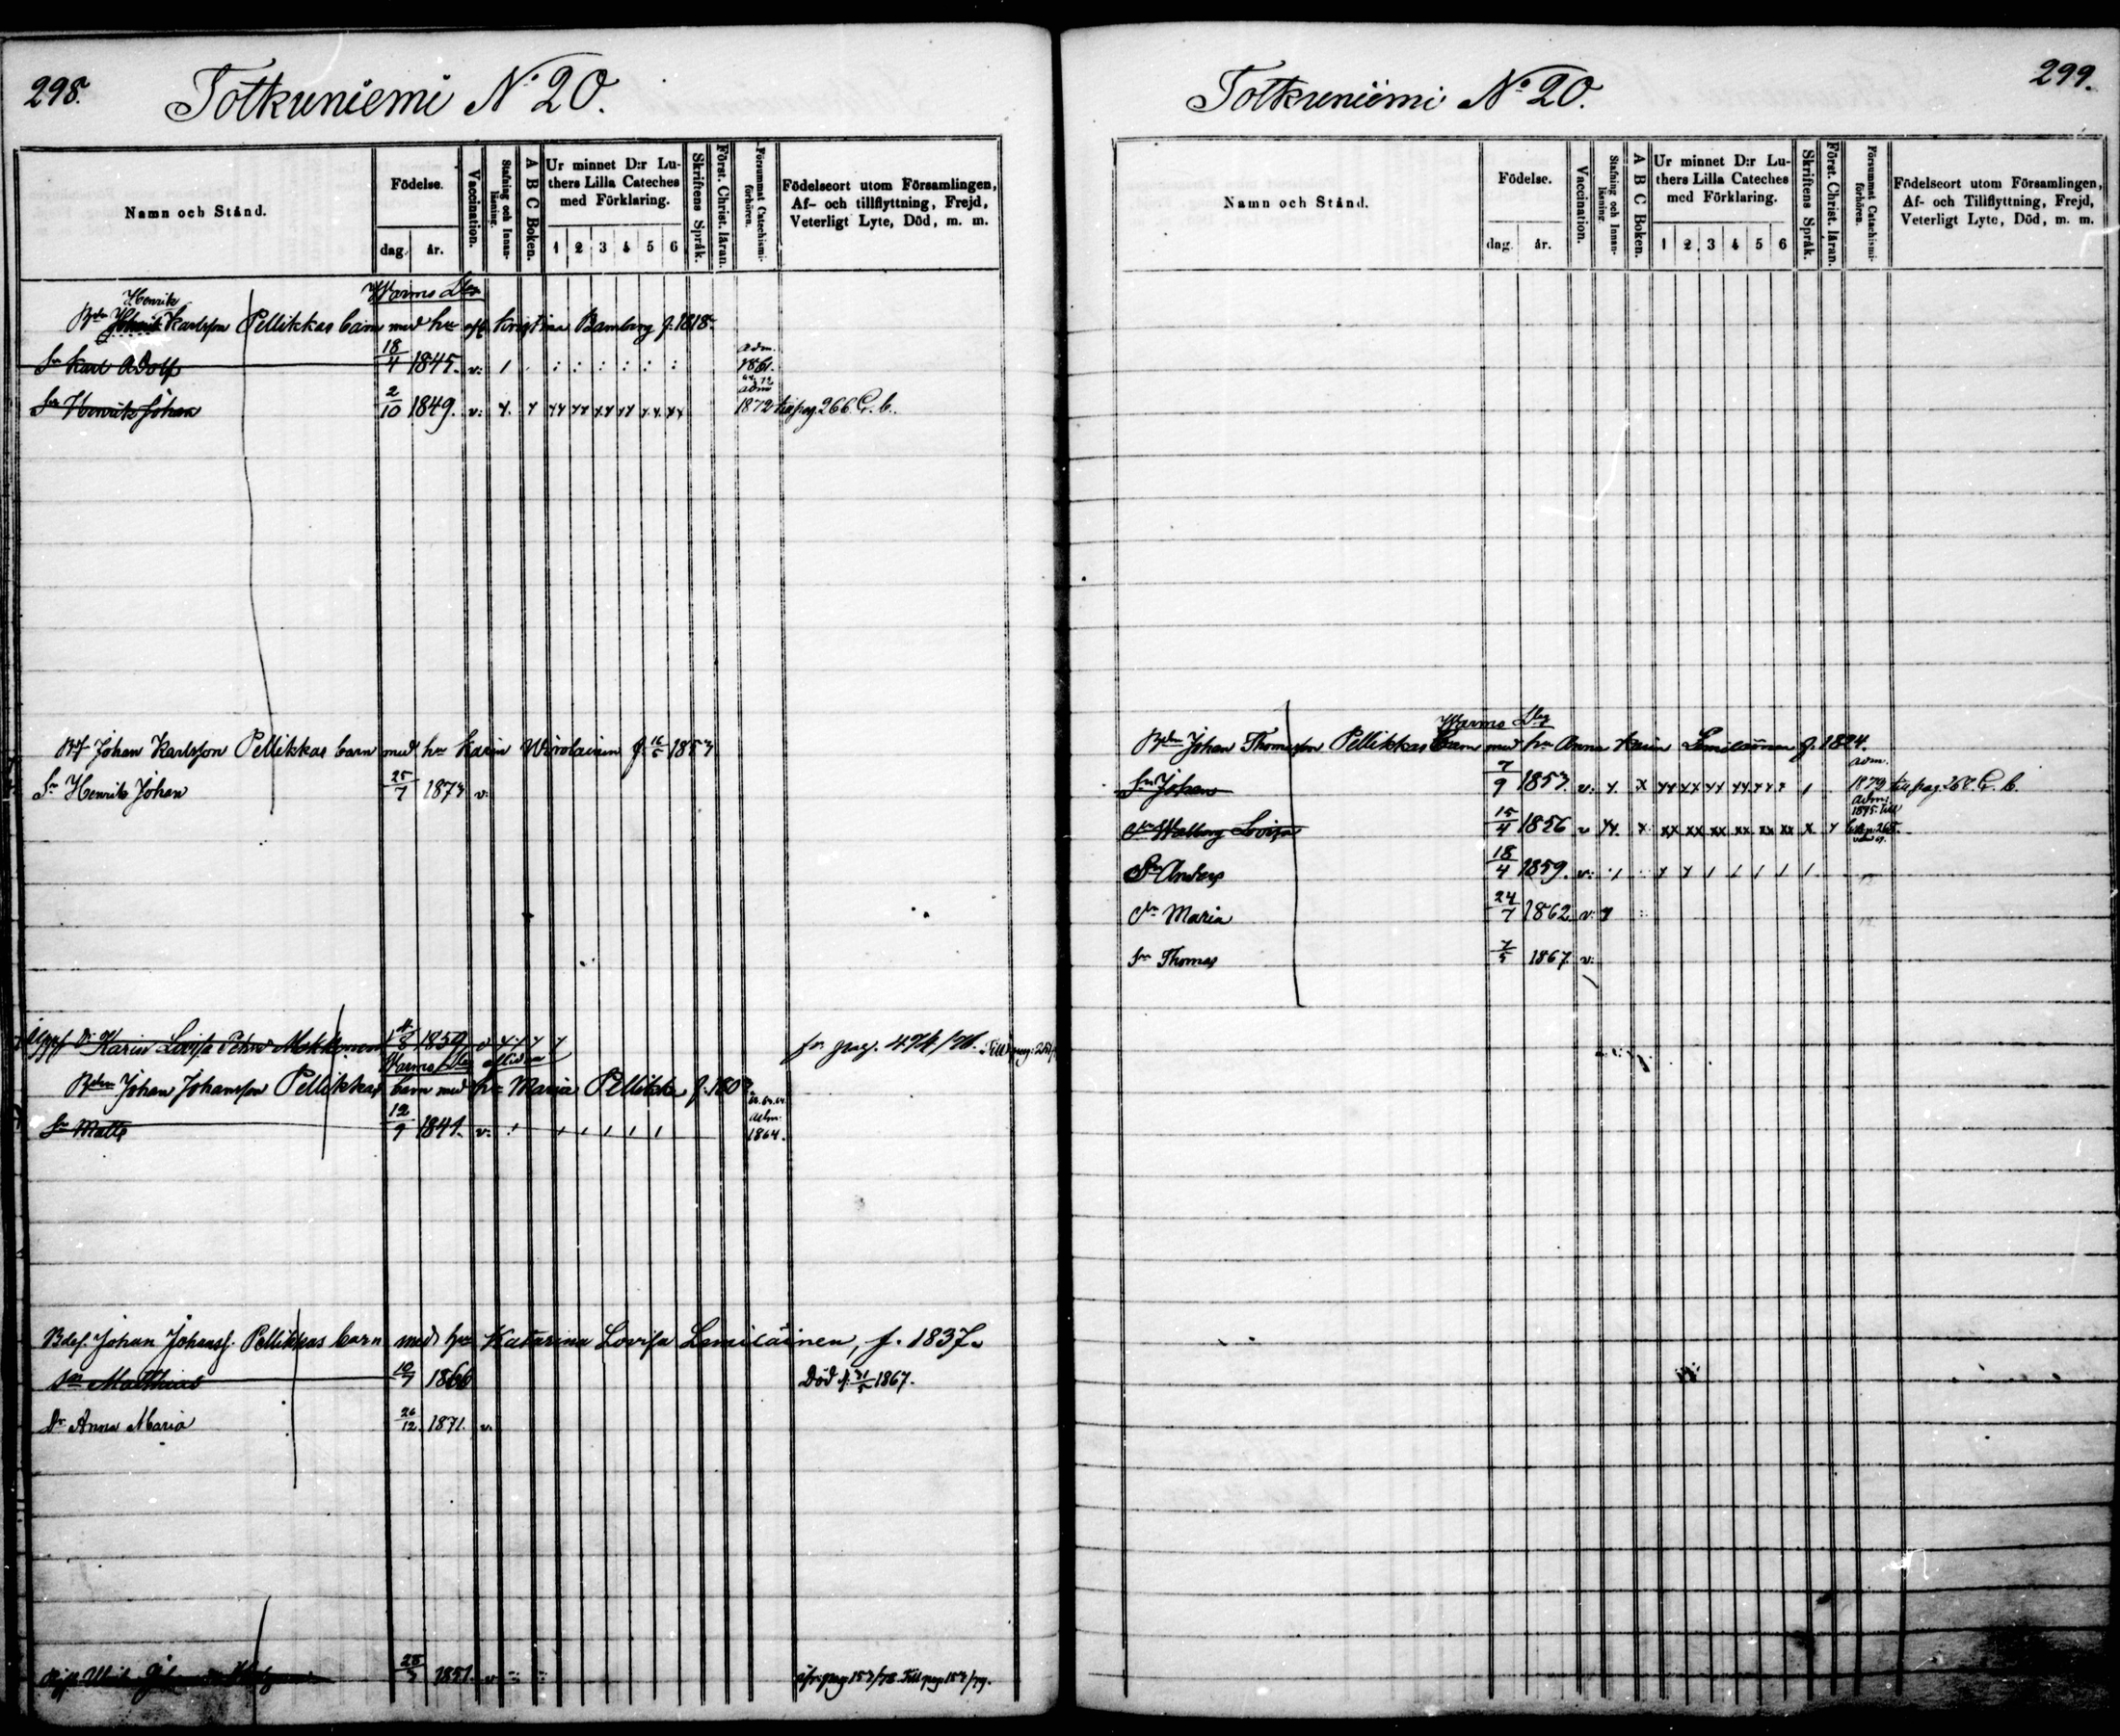 298.
Totkuniemi No 20.
Namn och Stånd.
Födelse.
dag. år.
Vaccination.
Stafning och Innan-läsning.
A B C Boken.
Ur minnet D:r Lu-
thers Lilla Cateches
med Förklaring.
1 2 3 4 5 6
Skriftens Språk.
Först. Christ. läran.
Försummat Catechismi-förhören.
Födelseort utom Församlingen,
Af- och tillflyttning, Frejd,
Veterligt Lyte, Död, m. m.
Henrik
Karlsson Pellikkas barn med hu Kristina Bamberg f. 1818.
Sn Karl Adolf 18/4 1845. v: adm. 1861.
Sn Henrik Johan 2/10 1849. v: adm 1872 till pag. 266 C. b.
Johan Karlsson Pellikkas barn med hu Karin Wirolainen f. 16/5 1853
Sn Henrik Johan 25/7 1873 v.
Dr Karin Lovisa Mokkonen 8 1859 fr. pag. 474/
Johan Johansson Pellikkas barn med hu Maria Pellikka
Sn Matts 12/9 1841. v: adm: 1864.
Johan Johanss. Pellikkas barn med hu Katarina Lovisa Lemiläinen, f. 1837.
Sn Matthias 10/7 1866 Död d. 31/5 1867.
Dr Anna Maria 26/12 1871. v.
1851. v 
299.
Totkuniemi No 20.
Namn och Stånd.
Födelse.
dag. år.
Vaccination.
Stafning och Innan-läsning.
A B C Boken.
Ur minnet D:r Lu-
thers Lilla Cateches
med Förklaring.
1 2 3 4 5 6
Skriftens Språk.
Först. Christ. läran.
Försummat Catechismi-förhören.
Födelseort utom Församlingen,
Af- och Tillflyttning, Frejd,
Veterligt Lyte, Död, m. m.
Johan Thomasson Pellikkas barn med hu Anna Karin Lemiläinen f. 1824.
Sn Johan 7/9 1853. v: adm. 1872 till pag. 268 C. b.
Dr Walborg Lovisa 15/4 1856 v adm: 1875 till
Sn Anders 18/4 1859. v:
Dr Maria 24/7 1862 v:
Sn Thomas 7/5 1867. v: